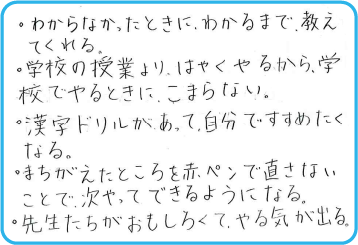 ・わからなかったときに、わかるまで、教え
てくれる。
・学校の授業より、はやくやるから、学
校でやるときに、こまらない。
・漢字ドリルがあって、自分ですすめたく
なる。
・まちがえたところを赤ペンで直さない
ことで、次やってできるようになる。
・先生たちがおもしろくて、やる気が出る。